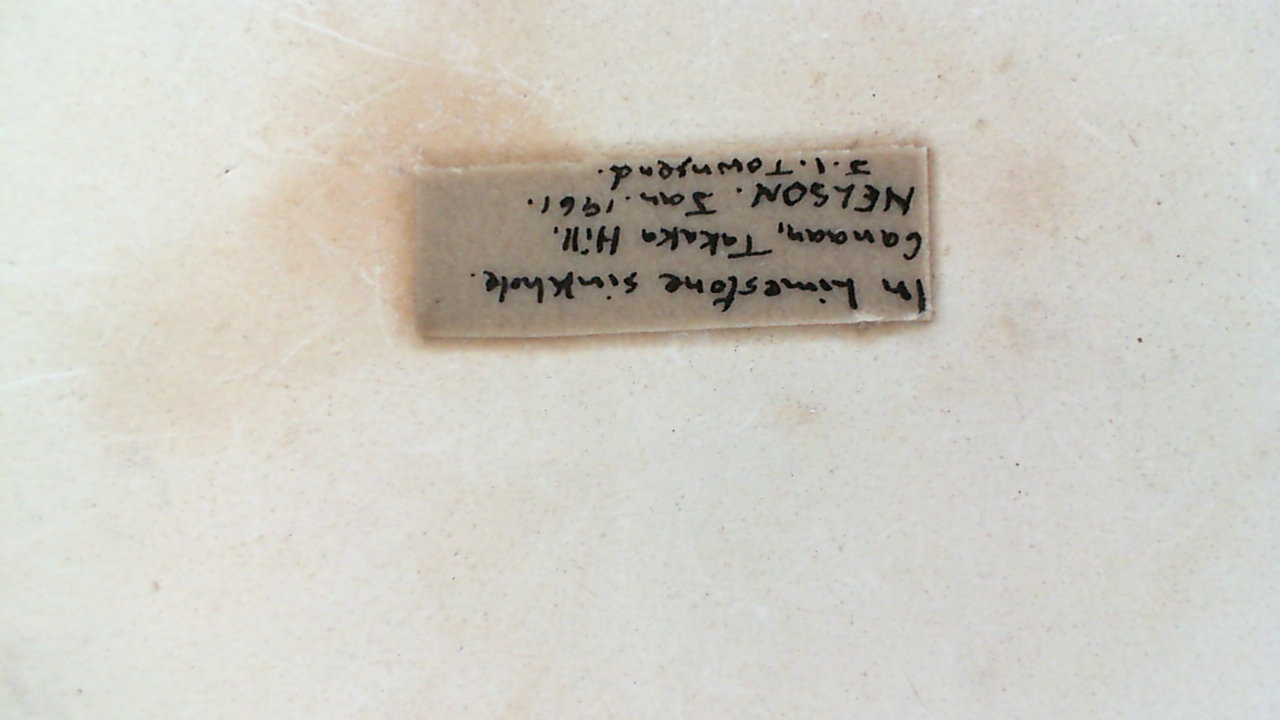 In Limestone sinkhole.
Canaan, Takaka Hill.
NELSON. Jan. 1961.
J.I. Townsend.